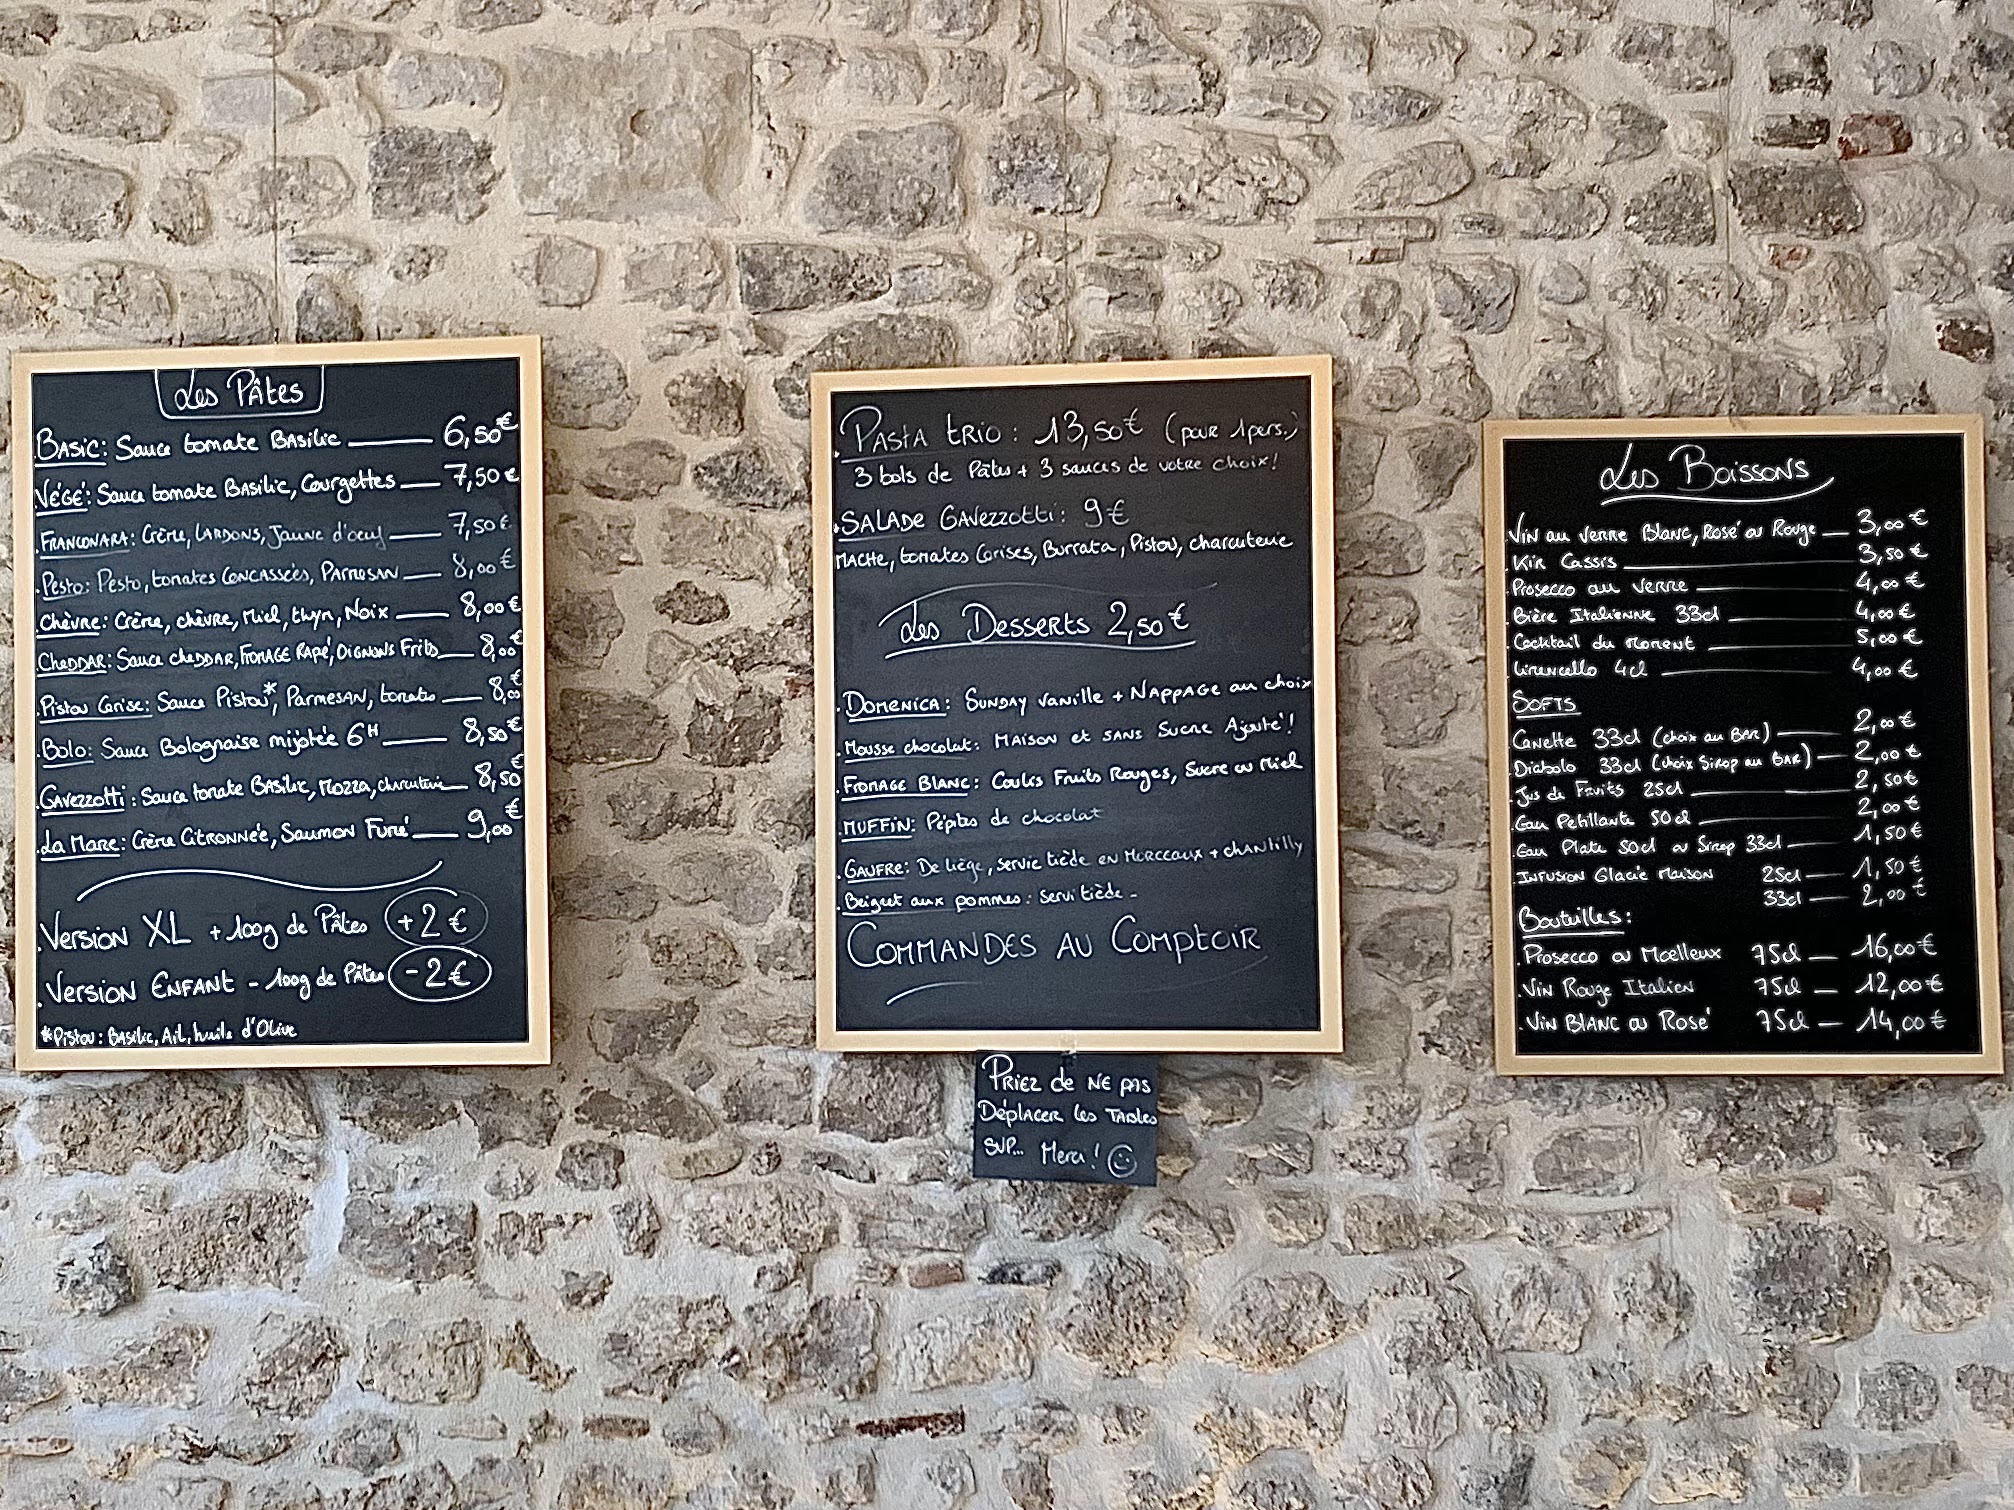 Les Pâtes
BASIC: Sauce tomate BASilic 6,50€
VÉGÉ: Sauce tomate BASilic, Courgettes 7,50€
FRANCONARA: Crème, LARDONS, Jaune d'oeuf 7,50€
Pesto: Pesto, tomates CONCASSéES, PARMESAN 8,00€
Chèvre: Crème, chèvre, Miel, thym, Noix 8,00€
CheDDAR: Sauce cheDDAR, FROMAGE RAPÉ, OIGNONS Frits 8,00€
Pistou Cerise: Sauce Pistou*, PARMESAN, tomate 8,00€
Bolo: Sauce Bolognaise mijotée 6H 8,50€
GAVEZZOTTi: Sauce tomate BASilic, Mozza, charcuterie 8,50€
La Mare: Crème CITRONNéE, SAUMON Fumé 9,00€
Version XL + 100g de Pâtes +2€
Version ENFANT - 100g de Pâtes -2€
*Pistou: BASilic, Ail, huile d'Olive
PASTA tRIO: 13,50€ (pour 1pers.)
3 bols de Pâtes + 3 sauces de votre choix!
SALADE GAVEZZOTTI: 9€
MACHE, tomates Cerises, Burrata, Pistou, charcuterie
Les Desserts 2,50€
Domenica: SUNDAY Vanille + NAPPAGE au choix
Mousse chocolat: MAISON et SANS Sucre Ajouté!
FROMAGE BLANC: Coulis Fruits Rouges, Sucre ou Miel
MUFFiN: Pépites de chocolat
GAUFRE: De liège, servie tiède en MORCEAUX + chantilly
Beignet aux pommes: Servi tiède -
COMMANDES AU COMPTOIR
PRIEZ de NE PAS
DéPLACER les TABLES
SVP... Merci!
Les Boissons
VIN au verre BLANC, Rosé ou Rouge 3,00€
Kir CASSIS 3,50€
Prosecco au VERRE 4,00€
Bière ITALIENNE 33cl 4,00€
Cocktail du moment 5,00€
Limencello 4cl 4,00€
SOFTS
Canette 33cl (choix au BAR) 2,00€
Diabolo 33cl (choix Sirop au BAR) 2,00€
Jus de Fruits 25cl 2,50€
Eau Petillante 50cl 2,00€
Eau Plate 50cl ou Sirop 33cl 1,50€
INFUSION Glacée Maison 25cl 1,50€
33cl 2,00€
Bouteilles:
Prosecco ou Moelleux 75cl 16,00€
VIN Rouge Italien 75cl 12,00€
VIN BLANC ou Rosé 75cl 14,00€